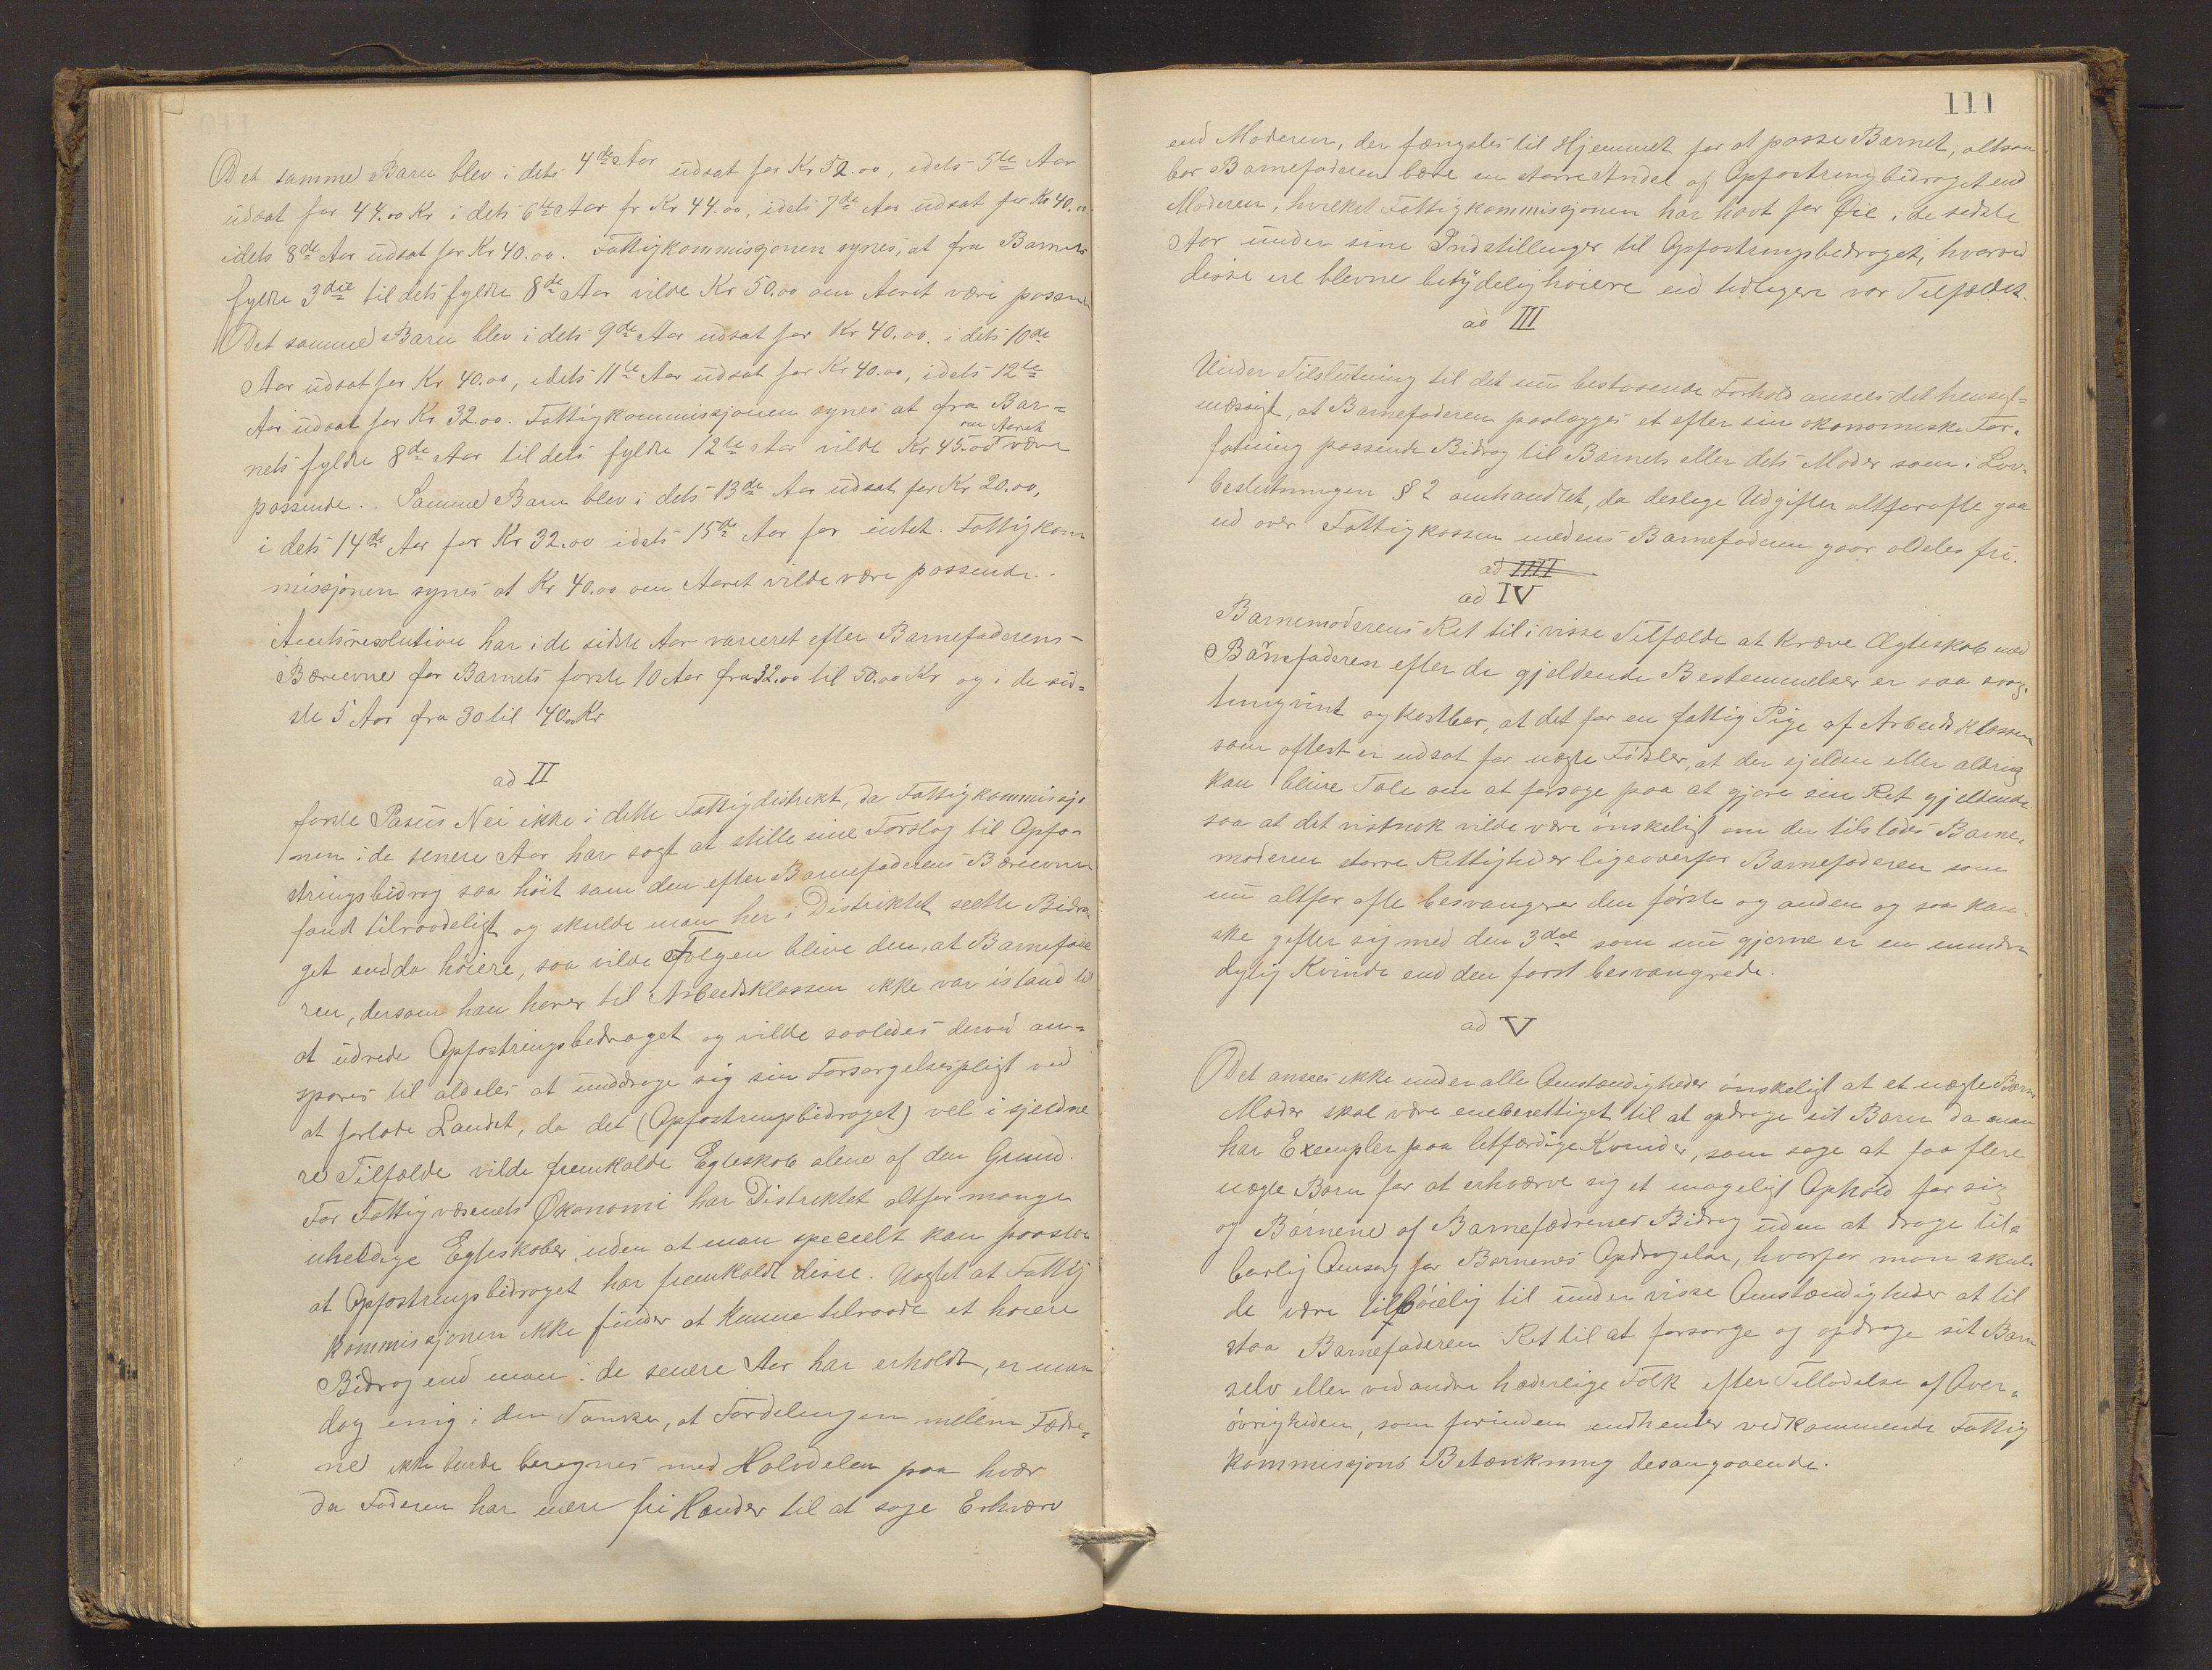 Det samme Barn blev i dets 4de Aar udsat for Kr 52.00, idets 5te Aar
udsat for 44.00 Kr i dets 6te Aar fr Kr 44.00, idets 7de Aar udsat for Kr 40.00
idets 8de Aar udsat for Kr 40.00. Fattigkommissjonen synes, at fra Barnets
fyldte 3die til dets fyldte 8de Aar vilde Kr 50.00 om Aaret være passende
Det samme Barn blev i dets 9de Aar udsat for Kr 40.00. i dets 10de
Aar udsat for Kr 40.00, idets 11te Aar udsat for Kr 40.00, idets 12te
Aar udsat for Kr 32.00. Fattigkommissjonen synes at fra Bar=
om Aaret
nets fyldte 8de Aar til dets fyldte 12te Aar vilde Kr 45.00 være
passende.. Samme Barn blev i dets 13de Aar udsat for Kr 20.00,
i dets 14de Aar for Kr 32.00 idets 15de Aar for intet. Fattigkom
missjonen synes at Kr 40.00 om Aaret vilde være passende..
Amtsresolution har i de sidste Aar varieret efter Barnefaderens
Bæreevne for Barnets første 10 Aar fra 32.00 til 50.00 Kr og i de sid=
ste 5 Aar fra 30 til 40.00 Kr
ad II
første Pasus Nei ikke i dette Fattigdistrikt, da Fattigkommissjo
nen i de senere Aar har søgt at stille sine Forslag til Opfo=
stringsbidrag saa høit som den efter Barnefaderens Bæreevne
fandt tilraadeligt og skulde man her i Distriktet sætte Bidra
get endda høiere, saa vilde Følgen blive den, at Barnefade
ren, dersom han hører til Arbeidsklassen ikke var istand til
at udrede Opfostringsbidraget og vilde saaledes derved an=
spores til aldeles at unddrage sig sin Forsørgelsespligt ved
at forlade Landet, da det (Opfostringsbidraget) vel i sjeldne
re Tilfælde vilde fremkalde Egteskab alene af den Grund.
For Fattigvæsenets Økonomi har Distriktet altfor mange
uheldige Egteskaber, uden at man specielt kan paastaa
at Opfostringsbidraget har fremkaldt disse. Uagtet at Fattig
kommissjonen ikke finder at kunne tilraade et høiere
Bidrag end man i de senere Aar har erholdt, er man
dog enig i den Tanke, at Fordelingen mellem Fædre=
ne ikke burde beregnes med Halvdelen paa hver
da Faderen har mere fri Hænder til at søge Erhverv
111
end Moderen, der fængsles til Hjemmet for at passe Barnet; altsaa
bør Barnefaderen bære en større Andel af Opfostringbidraget end
Moderen, hvilket Fattigkommissjonen har havt for Øie i de sidste
Aar under sine Indstillinger til Opfostringsbidraget, hvorved
disse ere blevne betydelig høiere end tidligere var Tilfældet.
ad III
Under Tilslutning til det nu bestaaende Forhold ansees det hensigt=
mæssigt, at Barnefaderen paalægges et efter sin økonomiske For=
fatning passende Bidrag til Barnets eller dets Moder som i Lov=
beslutningen § 2 omhandlet, da deslige Udgifter altfor ofte gaa
ud over Fattigkassen medens Barnefaderen gaar aldeles fri.
ad IIII
ad IV
Barnemoderens Ret til i visse Tilfælde at kræve Ægteskab med
Barnefaderen efter de gjeldende Bestemmelser er saa
tungvint og kostbar, at det for en fattig Pige af Arbeidsklassen
som oftest er udsat for uægte Fødsler, at der sjelden eller aldrig
kan blive Tale om at forsøge paa at gjøre sin Ret gjeldende
saa at det vistnok vilde være ønskeligt om der tilstodes Barne=
moderen større Rettigheder ligeoverfor Barnefaderen som
nu altfor ofte besvangrer den første og anden og saa kan=
ske gifter sig med den 3die som nu gjerne er en mindre
dylig Kvinde end den først besvangrede.
ad V
Det ansees ikke under alle Omstændigheder ønskeligt at et uægte Barns
Moder skal være eneberettiget til at opdrage sit Barn da man
har Exempler paa letfærdige Kvinder, som søge at faa flere
uægte Børn for at erhverve sig et mageligt Ophold for sig
og Børnene af Barnefædrenes Bidrag uden at drage til=
børlig Omsorg for Børnenes Opdragelse, hvorfor man skul=
de være tilbøielig til under visse Omstændigheder at til
staa Barnefaderen Ret til at forsørge og opdrage sit Barn
selv eller ved andre hæderlige Folk efter Tilladelse af Over=
øvrigheden, som forinden indhenter vedkommende Fattig
kommissjons Betænkning desangaaende.